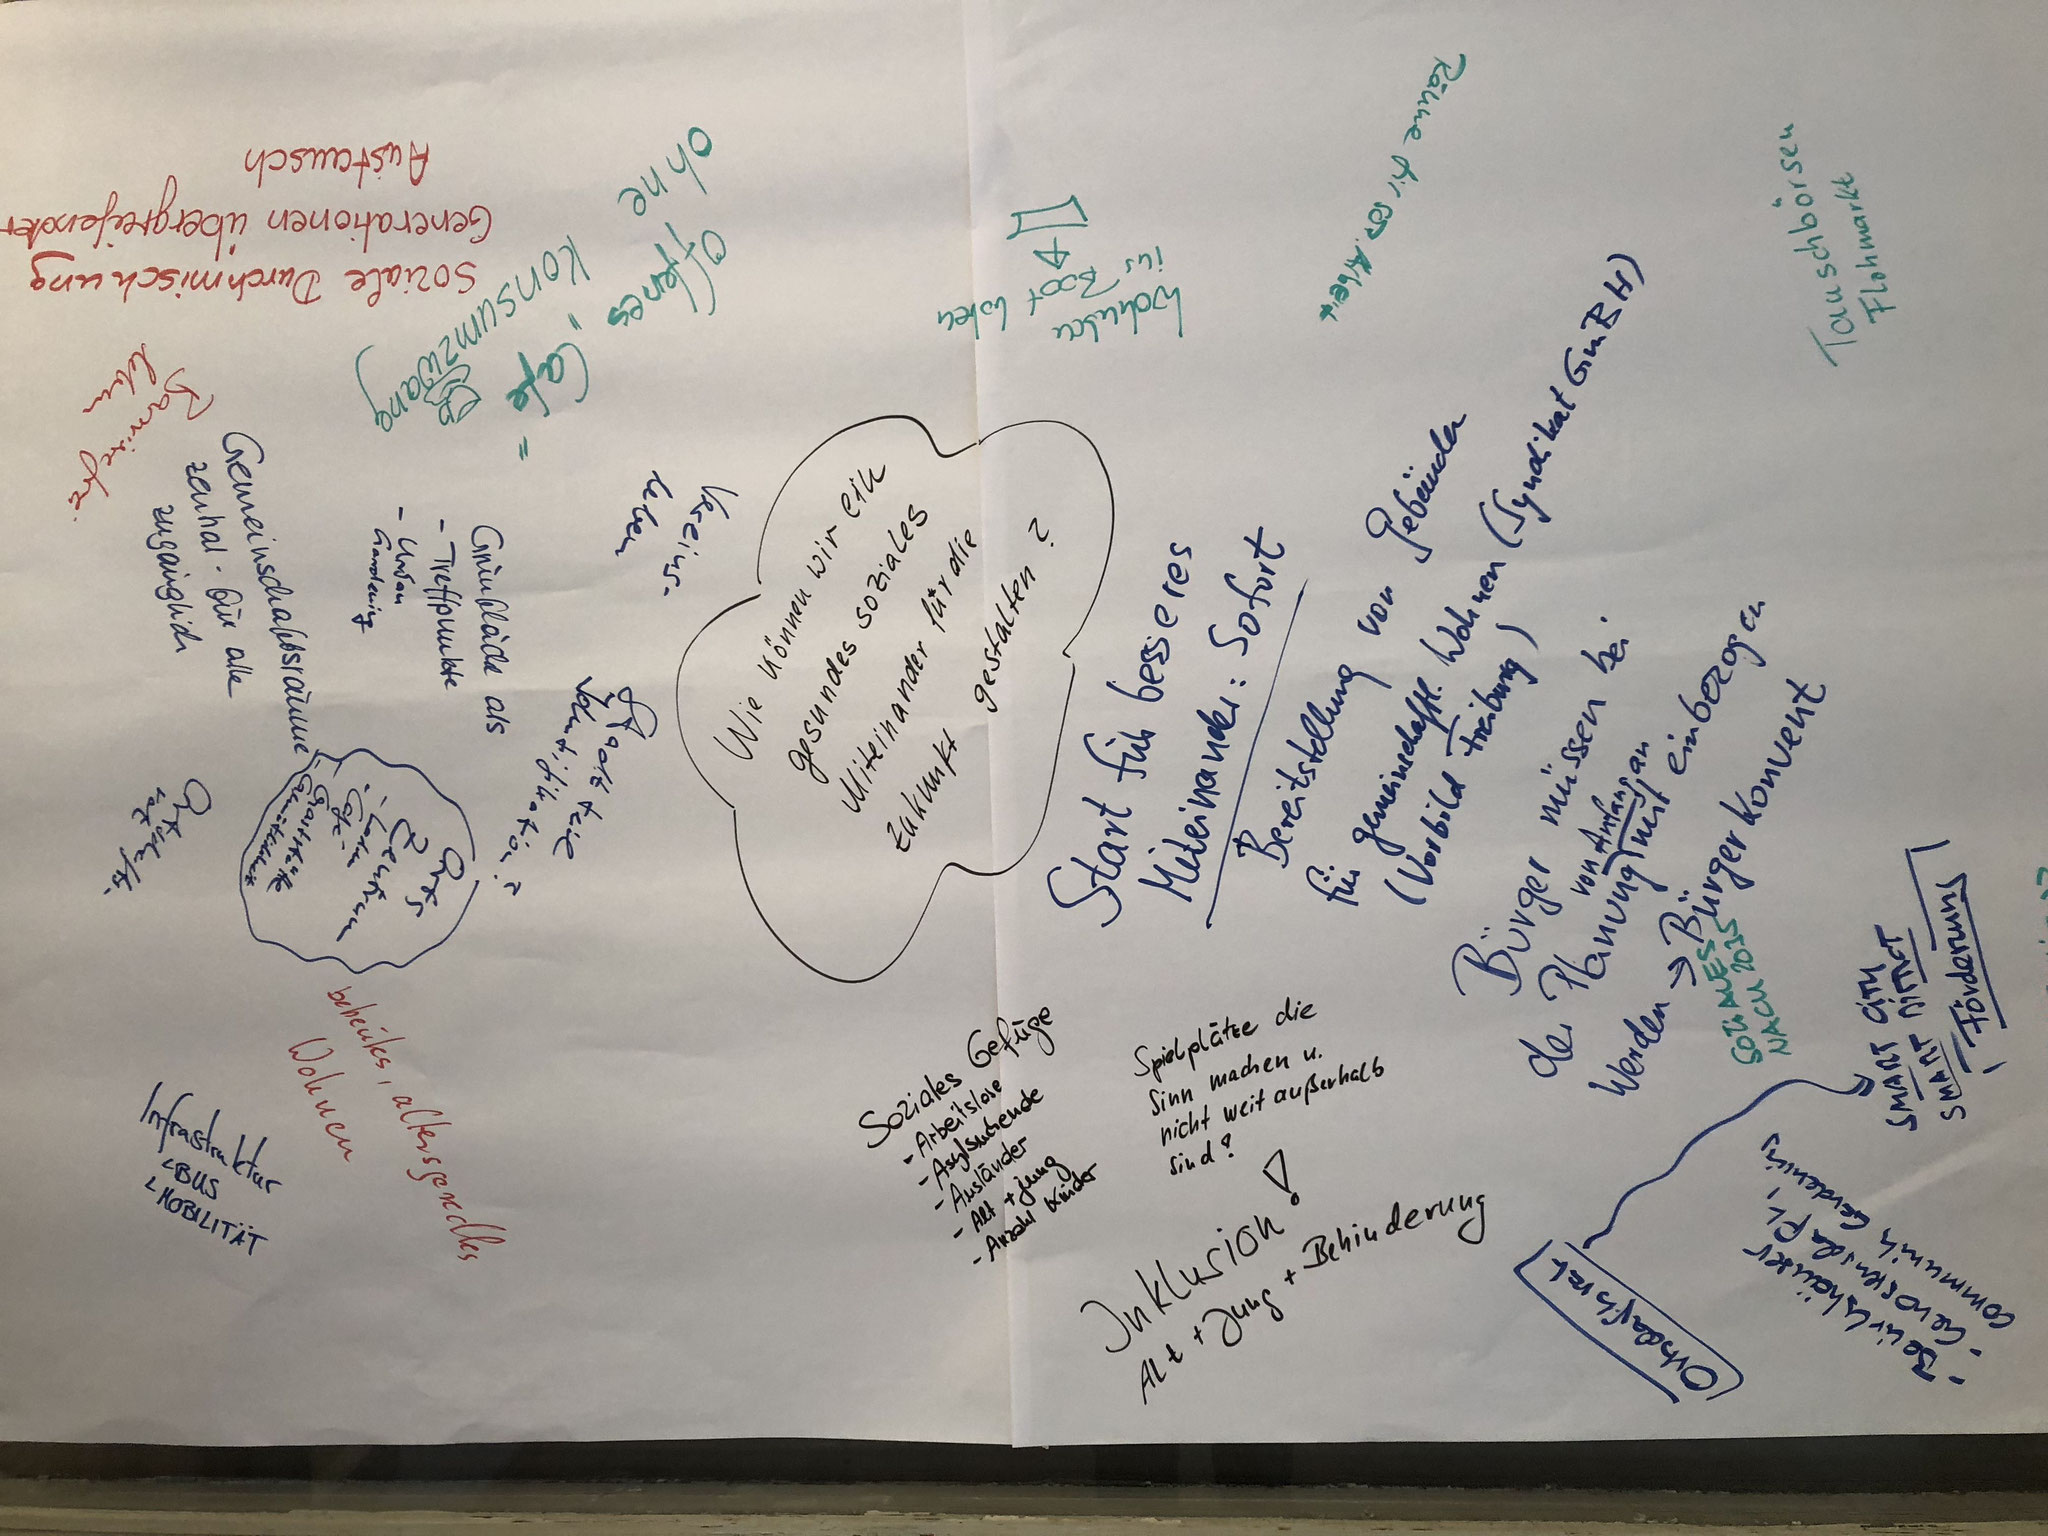 Wie können wir ein
gesundes soziales
Miteinander für die
zukunft gestalten?
Soziale Durchmischung
Generationen übergreifender
Austausch
Offenes "Café"
ohne
Konsumzwang
Wohnbau
ins
Boot holen
Räume für soz. Arbeit
Tauschbörsen
Flohmarkt
Barrierefr.
leben
Gemeinschaftsräume
zentral - für alle
zugänglich
Grünfläche als
- Treffpunkte
- Urban
Gardening
Vereins-
leben
Stadtteile
Identifikation?
Orts
Zentrum
- Laden
- Café
- Gaststätte
Ortschafts-
rat
betreutes, altersgerechtes
Wohnen
Infrastruktur
BUS
MOBILITÄT
Start für besseres
Miteinander: Sofort
Bereitstellung von Gebäuden
für gemeinschaftl. Wohnen (Syndikat GmBH)
(Vorbild Freiburg)
Bürger müssen bei
von Anfang an
der Planung mit einbezogen
werden → Bürgerkonvent
NACH 2035
SMART CITY
SMART DISTRICT
Förderung
Ortschaftsrat
Soziales Gefüge
- Arbeitslose
- Asylsuchende
- Ausländer
- Alt + Jung
- Anzahl Kinder
Spielplätze die
Sinn machen u.
nicht weit außerhalb
sind?
Inklusion!
Alt + Jung + Behinderung